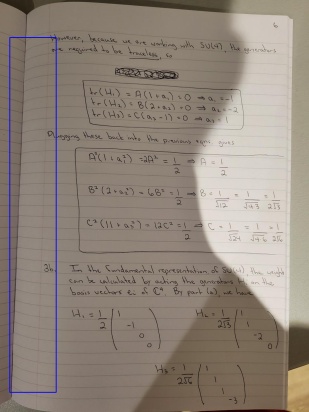 6
However, because we are working with SU(4), the generators
are required to be traceless, so
tr(H₁) = A(1+a₁) = 0 ⇒ a₁ = -1
tr(H₂) = B(2+a₂) = 0 ⇒ a₂ = -2
Plugging these back into the previous eqns. gives
A²(1+a₁²) = 2A² = 1/2 ⇒ A = 1/2
B²(2+a₂²) = 6B² = 1/2 ⇒ B = 1/√12 = 1/√4·3 = 1/2√3
= 12C² = 1/2 ⇒ C = 1/√24 = 1/√4·6 = 1/2√6
3b. In the fundamental representation of SU(4), the weights
can be calculated by acting the generators Hᵢ on the
basis vectors eᵢ of C⁴. By part (a), we have
H₁ = 1/2 ( 1 -1 0 0 ) H₂ = 1/2√3 ( 1 1 -2 0 )
H₃ = 1/2√6 ( 1 1 1 -3 )